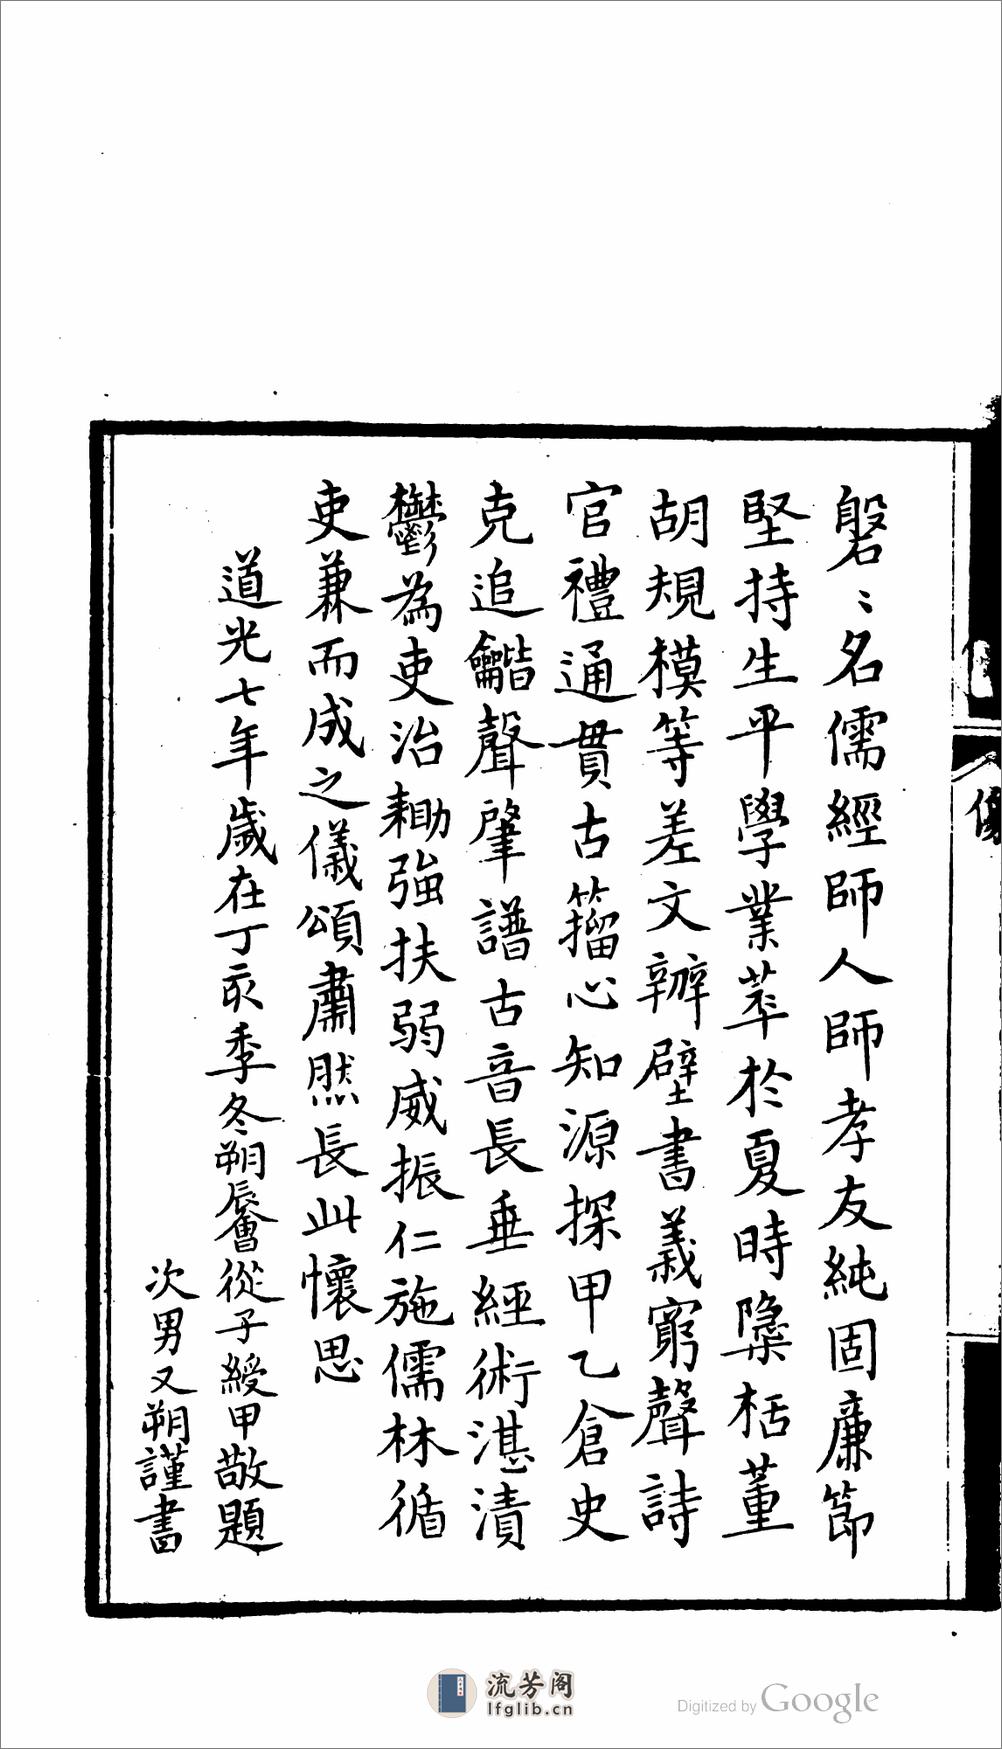 磐〻名儒經師人師孝友純固廉節
堅持生平學業萃於夏時隱栝董
胡規模等差文辨壁書義窮聲詩
官禮通貫古籀心知源探甲乙倉史
克追龤聲肈譜古音長垂經術湛漬
鬱為吏治耡強扶弱威振仁施儒林循
吏兼而成之儀頌肅然長此懷思
道光七年歲在丁亥季冬朔

從子綬甲敬題
次男又朔謹書
流芳阁
lfglib.cn
Digitized by Google